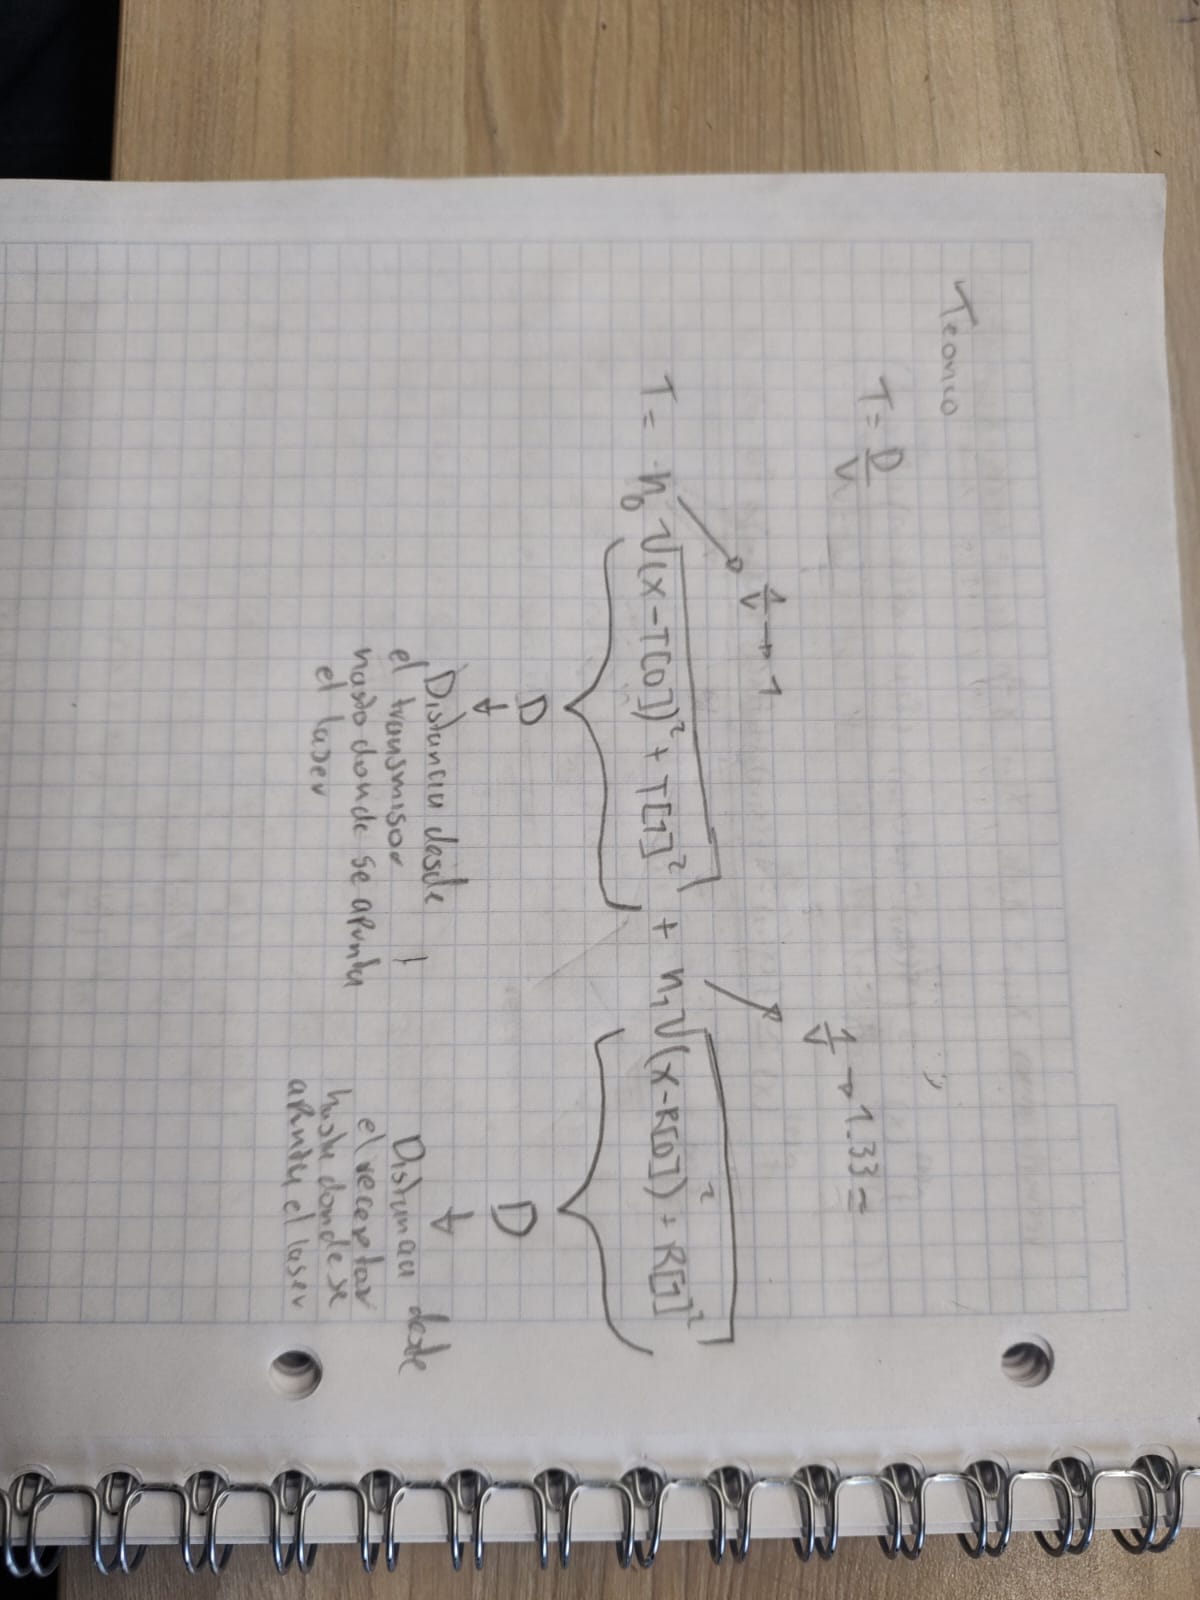 Teorico
T = D/V
1/V → 1
1/V → 1.33 =
T = n₀ √(x-T[0])² + T[1]² + n₁ √(x-R[0])² + R[1]²
D
D
↓
↓
Distancia desde
el transmisor
hasta donde se apunta
el laser
Distancia desde
el receptor
hasta donde se
apunta el laser